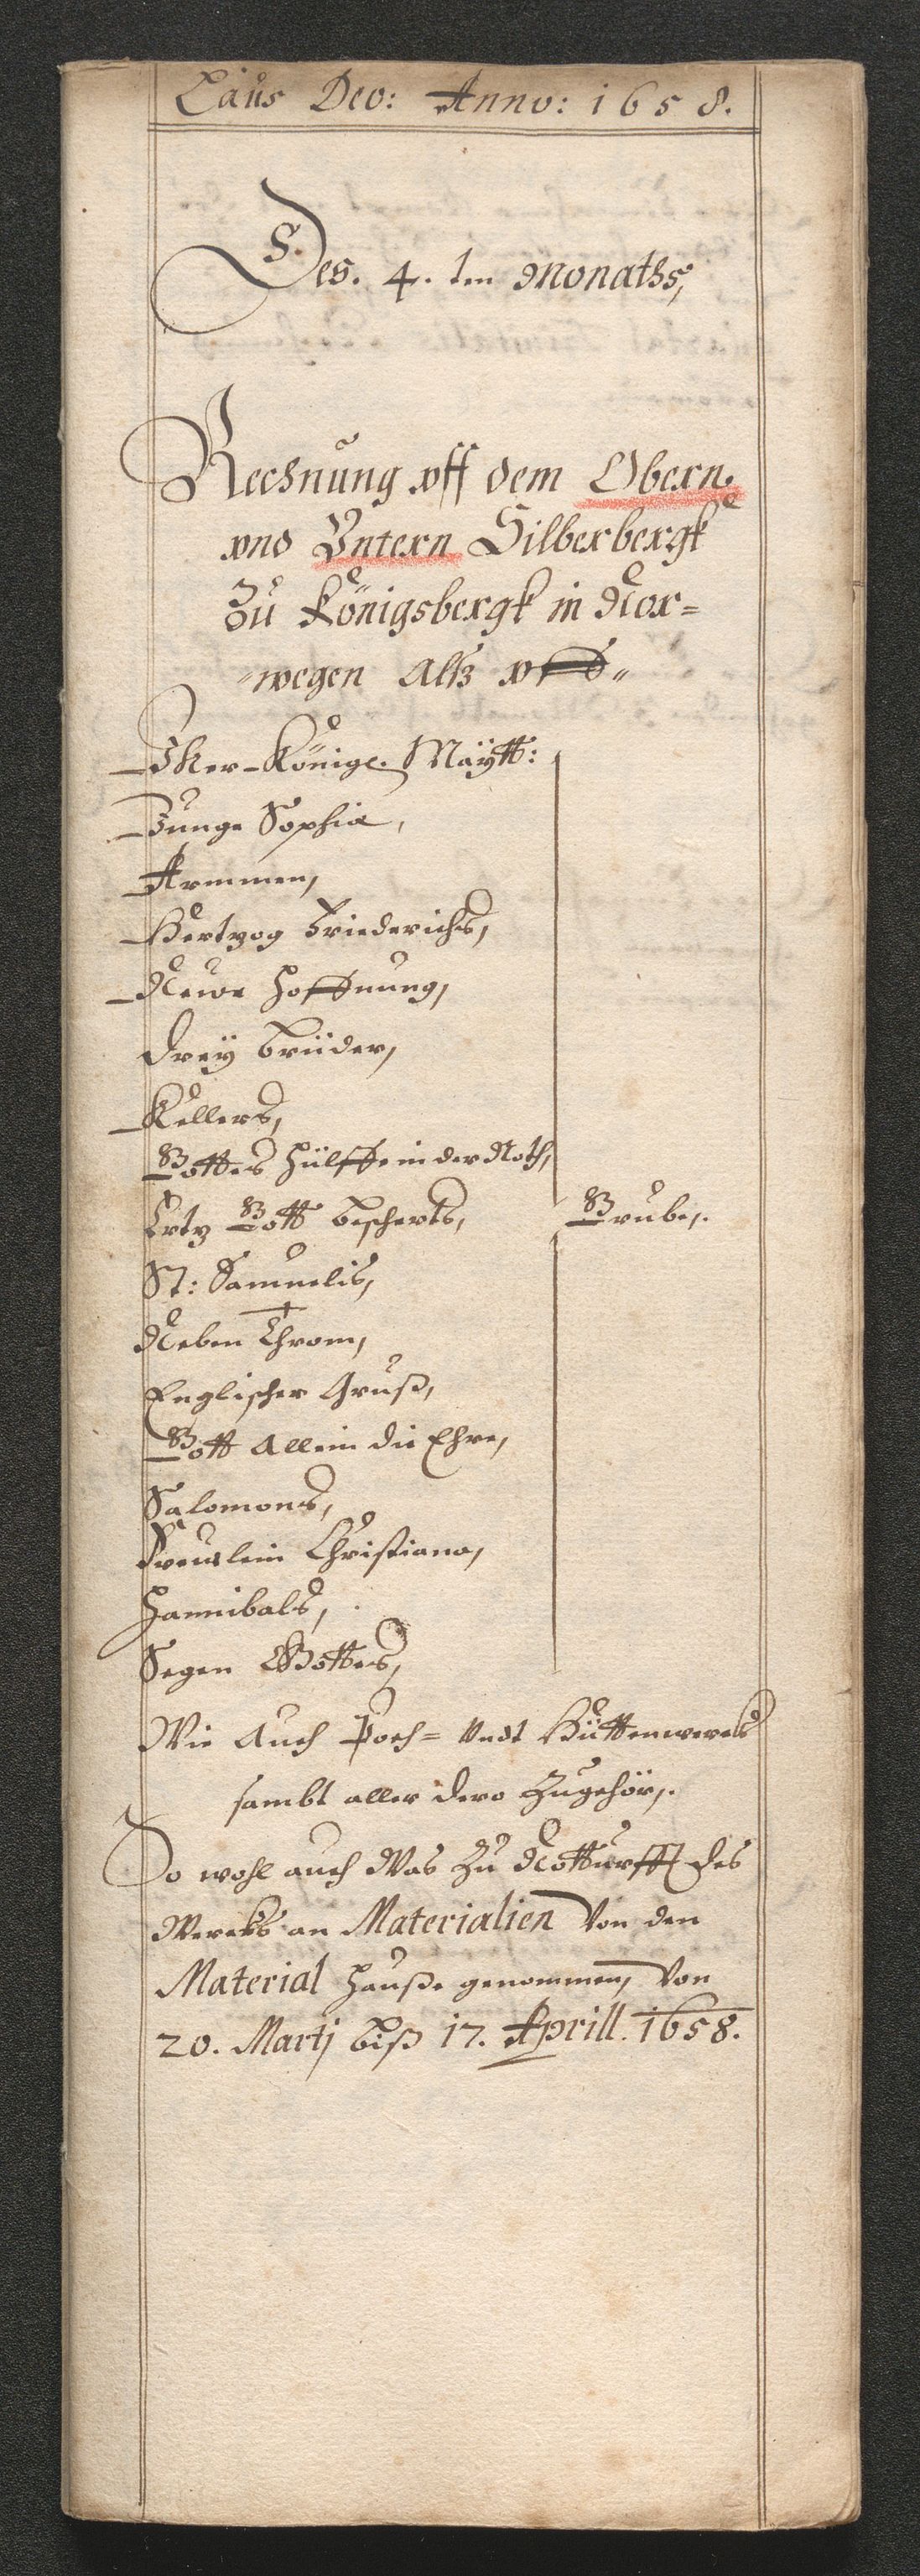 Laus Deo: Anno: 1658.
Des. 4. ten Monaths,
Rechnung vff dem Obern.
vnd Vntern Silberbergk
Zu Königsbergk in Nor=
wegen Alß vff
Iher Königl. Maÿtt:
Junge Sophia,
Armmen,
Hertzog Friederichs,
Newe Hoffnung,
Dreÿ Brüder,
Kellers,
Gottes Hülffe in der Noth,
Ertz Gott bescherts, Grube,.
St: Samuelis,
Neben Throm,
Englischer Gruß,
Gott Allein die Ehre,
Salomons,
Freulein Christiana,
Hannibals,
Segen Gottes,
Wie Auch Poch= Vndt Hüttenwercks
sambt aller dero Zugehör,.
So wohl auch Was Zu Notturfft des
Wercks an Materialien Von den
Material Hauße genommen, Von
20. Martj biß 17. Aprill. 1658.